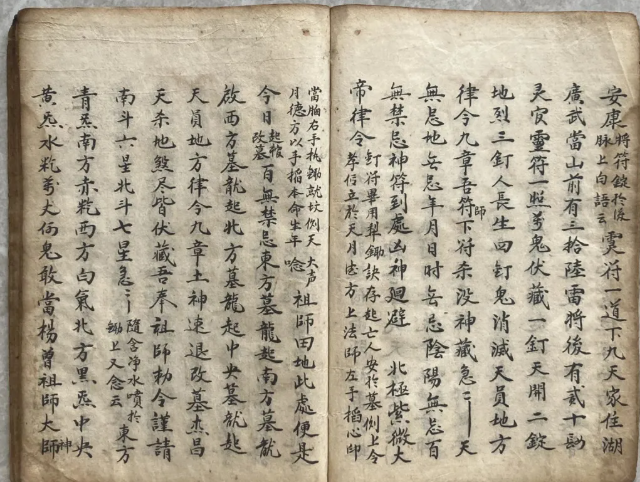 安康 將符錠於後脉上白語云 靈符一道下九天家住湖
廣武當山前有三拾陸雷將後有貳十四
灵官靈符一照万鬼伏藏一釘天開二錠
地列三釘人長生四釘鬼消滅天員地方
律令九章吾師符下符杀没神藏急〻天
無忌地無忌年月日時無忌陰陽無忌百
無禁忌神符到處凶神廻避 北極紫微大
帝律令 釘符畢用犁鋤訣存起亡人安於墓側上令孝信立於天月德方上法師左手搯心印
當胸右手执鋤就坟側天月德方以手搯本命生年 大声唸 祖師田地此處便是
今日 起攢改墓 百無禁忌東方墓龍起南方墓龍
啟西方墓龍起北方墓龍起中央墓龍起
天員地方律令九章土神速退改墓杰昌
天杀地煞尽皆伏藏吾奉祖師勅令謹請
南斗六星北斗七星急〻 隨含净水噴於東方鋤上又念云
青炁南方赤炁西方白氣北方黑炁中央
黄炁水炁萬丈何鬼敢當楊曾祖師大神師